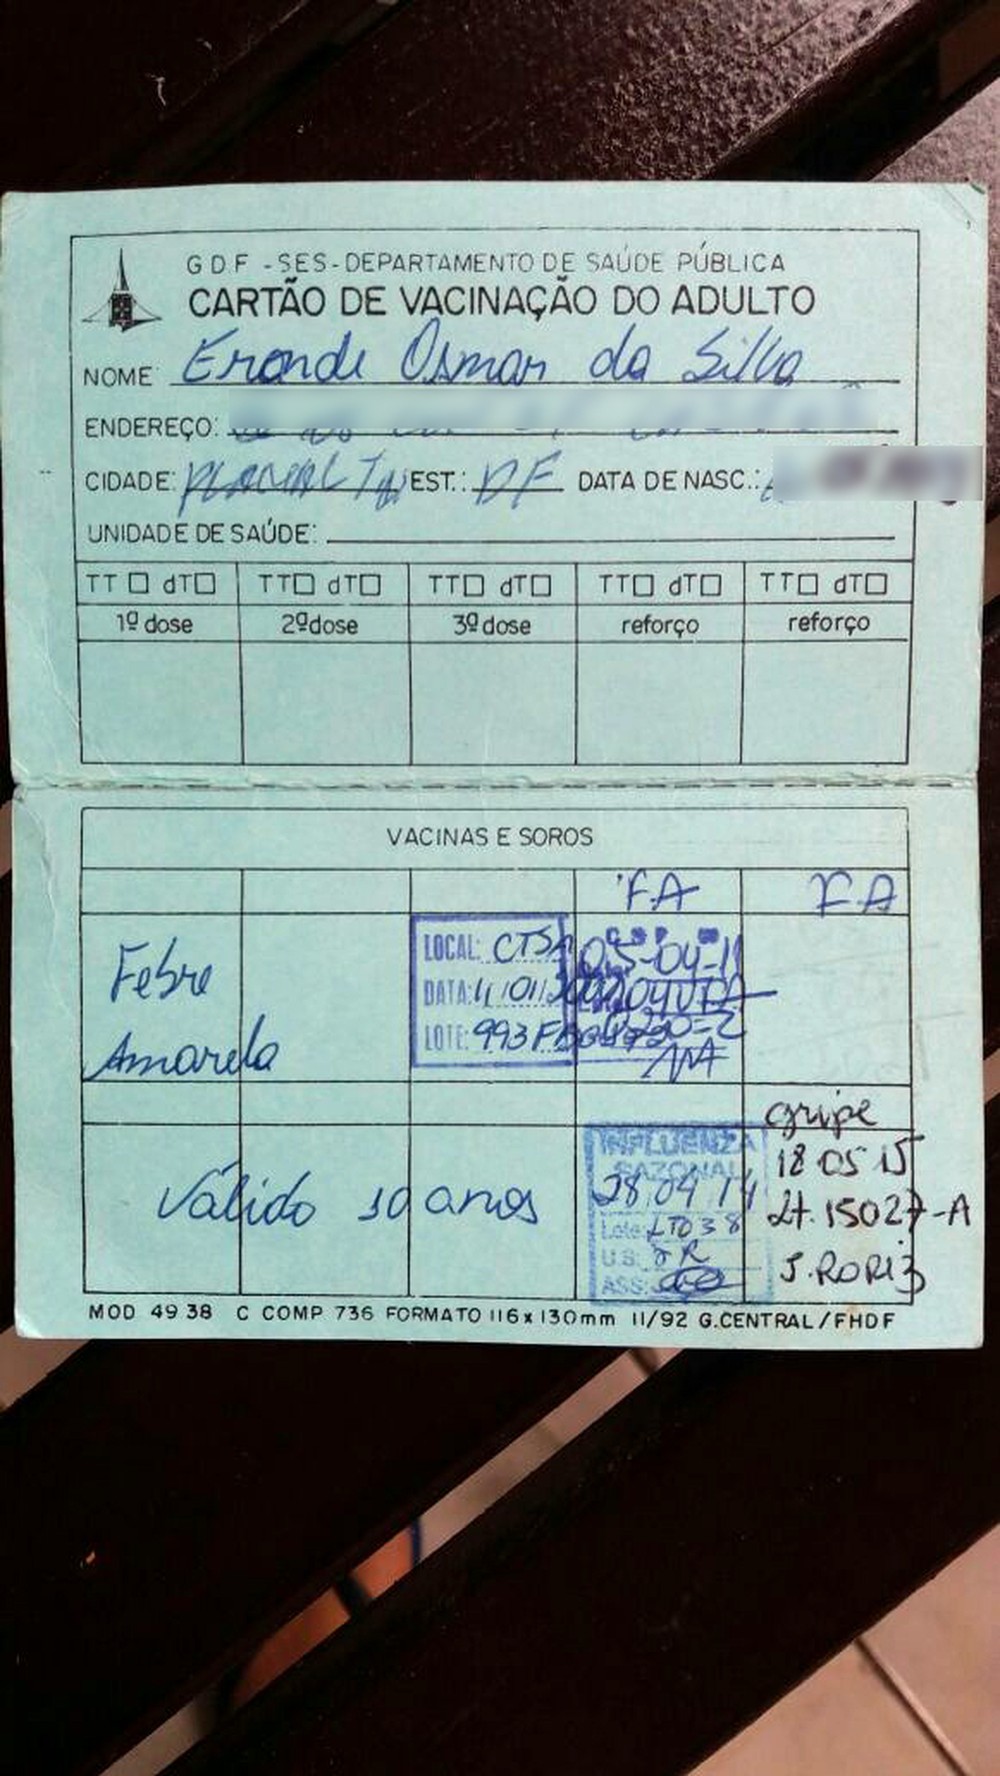 GDF - SES - DEPARTAMENTO DE SAÚDE PÚBLICA
CARTÃO DE VACINAÇÃO DO ADULTO
NOME: Eronde Osmar da Silva
ENDEREÇO:
CIDADE: EST.: DF DATA DE NASC.:
UNIDADE DE SAÚDE:
TT dT TT dT TT dT TT dT TT dT
1ª dose 2ª dose 3ª dose reforço reforço
VACINAS E SOROS
F.A F.A
Febre Amarela
LOCAL: CTSA
DATA: 11/01/
LOTE: 993F
05-04-11
gripe
18 05 15
Lt. 15027-A
J. RORIZ
Válido 10 anos
INFLUENZA
SAZONAL
28/04/14
Lote: LT038
U.S:
ASS:
MOD 49 38 C COMP 736 FORMATO 116x130mm 11/92 G.CENTRAL/FHDF